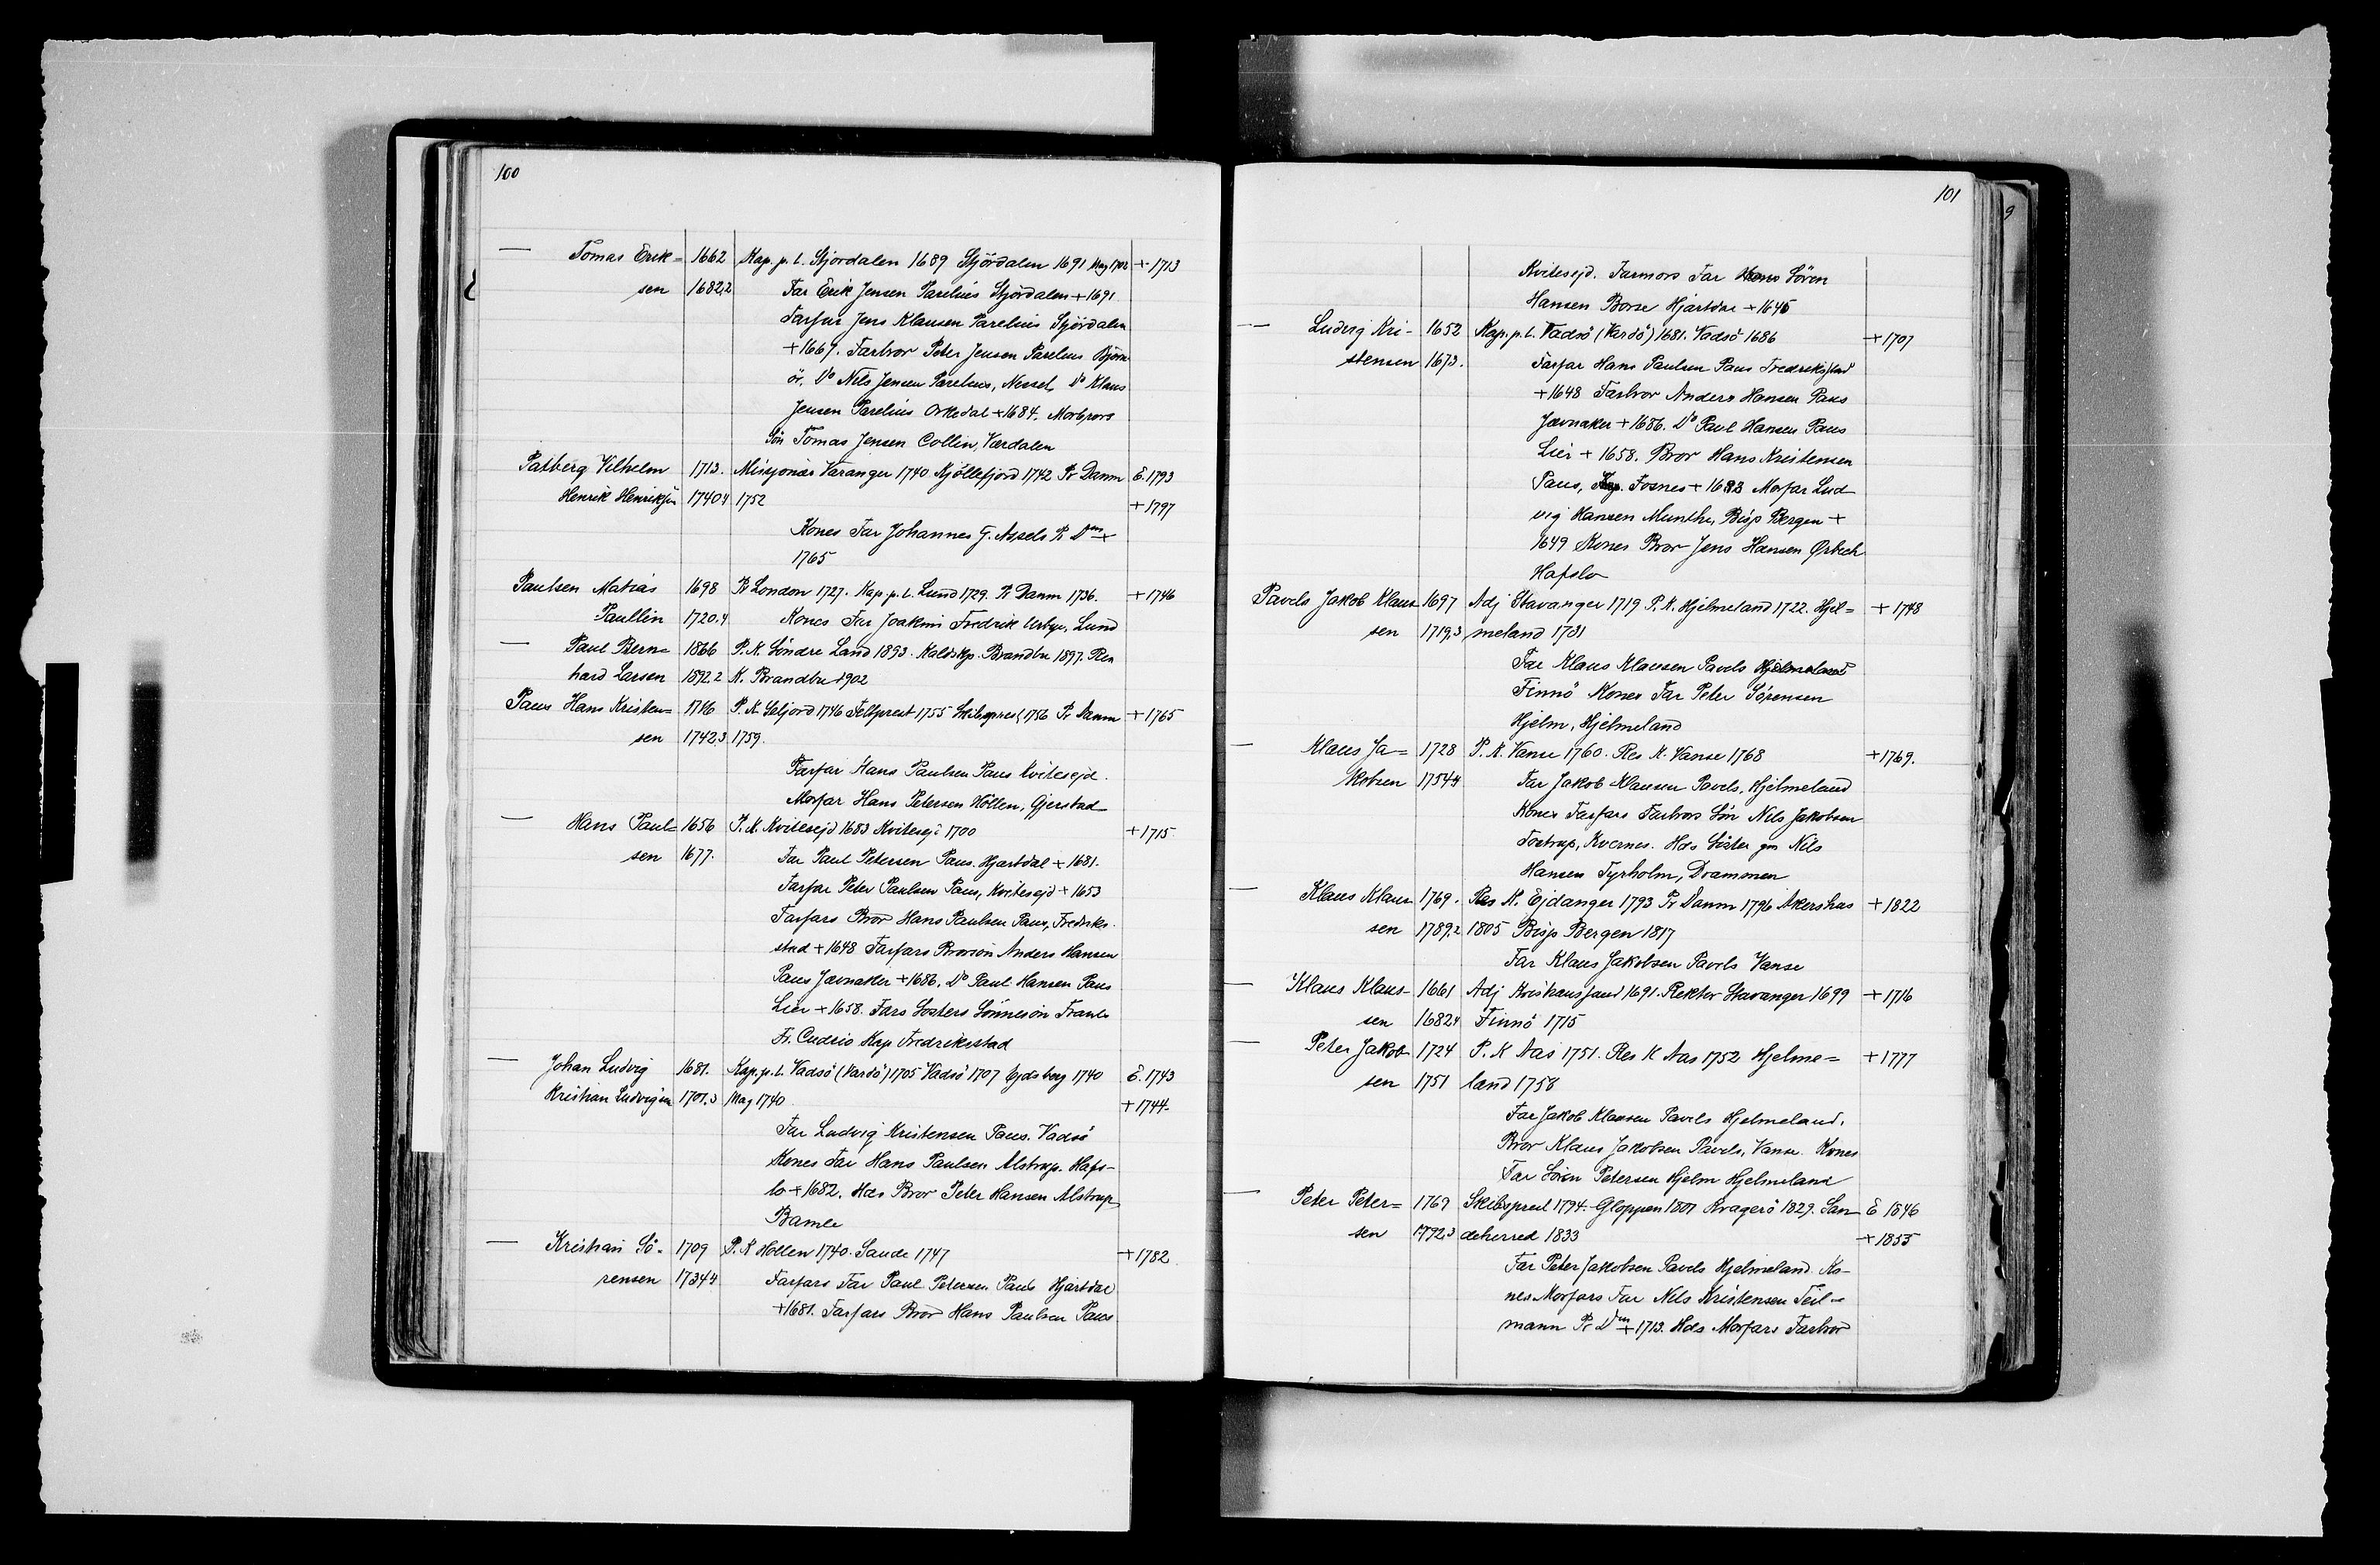 100
— Tomas Erik= 1662 Kap. p. l. Stjördalen 1689 Stjördalen 1691 Mag 1702 + 1713
sen 1682,2 Far Erik Jensen Parelius Stjördalen + 1691
Farfar Jens Klausen Parelius Stjördalen
+ 1667. Farbror Peter Jensen Parelius Björn
ör, Do Nils Jensen Parelius, Nesset, Do Klaus
Jensen Parelius Orkedal + 1684. Morbrors
Sön Tomas Jensen Collin, Værdalen
Patberg Vilhelm 1713. Missjonær Varanger 1740. Kjöllefjord 1742 Pr Danm E. 1793
Henrik Henriksen 1740.4 1752 + 1797
Kones Far Johannes G. Assels Pr Dm +
1765
Paulsen Matias 1698 Pr London 1727. Kap. p. l. Lund 1729. Pr Danm 1736. + 1746
Paullin 1720.4 Kones Far Joakim Fredrik Urbye, Lund
— Paul Bern= 1866 P. K. Söndre Land 1893. Kaldskp. Brandbu 1897. Res
hard Larsen 1892.2 K. Brandbu 1902
Paus Hans Kristen= 1716 P. K. Seljord 1746 Feltprest 1755 Skibsprest 1756 Pr Danm + 1765
sen 1742.3 1759.
Farfar Hans Paulsen Paus Kvitesejd.
Morfar Hans Petersen Höllen, Gjerstad
— Hans Paul= 1656 P. K. Kvitesejd 1683 Kvitesejd 1700 + 1715
sen 1677. Far Paul Petersen Paus. Hjartdal + 1681.
Farfar Peter Paulsen Paus, Kvitesejd + 1653
Farfars Bror Hans Paulsen Paus, Fredriks-
stad + 1648 Farfars Brorsön Anders Hansen
Paus Jævnaker + 1686, Do Paul Hansen Paus
Lier + 1658. Fars Søsters Sönnesön Frants
Fr. Cudrio Kap Fredrikstad
— Johan Ludvig 1681. Kap. p. l. Vadsö (Vardö) 1705 Vadsö 1707 Ejdsberg 1740 E. 1743
Kristian Ludvigsen 1701.3 Mag 1740 + 1744.
Far Ludvig Kristensen Paus. Vadsö
Kones Far Hans Paulsen Alstrup. Hafs-
lo + 1682. Hds Bror Peter Hansen Alstrup,
Bamle
— Kristian Sö- 1709 P. K Hollen 1740. Saude 1747 + 1782
rensen 1734.4 Farfars Far Paul Petersen Paus Hjartdal
+ 1681. Farfars Bror Hans Paulsen Paus
101
9
Kvitesejd. Farmors Far Sören
Hansen Borse Hjartdal + 1645
— Ludvig Kri- 1652 Kap. p. l. Vadsö (Vardö) 1681. Vadsö 1686 + 1707
stensen 1673. Farfar Hans Paulsen Paus Fredrikstad
+ 1648 Farbror Anders Hansen Paus
Jævnaker + 1686. Do Paul Hansen Paus
Lier + 1658. Bror Hans Kristensen
Paus, Fosnes + 1683 Morfar Lud
vig Hansen Munthe, Bisp Bergen +
1649 Kones Bror Jens Hansen Ørbech
Hafslo
Pavels Jakob Klaus- 1697 Adj Stavanger 1719 P. K. Hjelmeland 1722. Hjel= + 1748
sen 1719,3 meland 1731
Far Klaus Klausen Pavels
Finnö Kones Far Peter Sørensen
Hjelm, Hjelmeland
— Klaus Ja= 1728 P. K. Vanse 1760. Res K. Vanse 1768 + 1769.
kobsen 1754.4 Far Jakob Klausen Pavels, Hjelmeland
Kones Farfars Farbrors Sön Nils Jakobsen
Tostrup, Kvernes. Hds Söster gm Nils
Hansen Tyrholm, Drammen
— Klaus Klaus- 1769. Res K. Ejdanger 1793 Pr Danm 1796 Akershus + 1822
sen 1789.2 1805 Bisp Bergen 1817
Far Klaus Jakobsen Pavels Vanse
— Klaus Klaus- 1661 Adj Kristiansand 1691. Rektor Stavanger 1699 + 1716
sen 1682.4 Finnö 1715
— Peter Jakob- 1724 P. K Aas 1751. Res K Aas 1752 Hjelme= + 1777
sen 1751 land 1758
Far Jakob Klausen Pavels Hjelmeland.
Bror Klaus Jakobsen Pavels, Vanse. Kones
Far Sören Petersen Hjelm Hjelmeland
— Peter Peter= 1769 Skibsprest 1794. Gloppen 1801 Kragerö 1829. San- E 1846
sen 1792.3 deherred 1833 + 1855
Far Peter Jakobsen Pavels Hjelmeland. Ko-
nes Morfars Far Nils Kristensen Teil=
mann Pr Dm + 1713. Hds Morfars Farbror